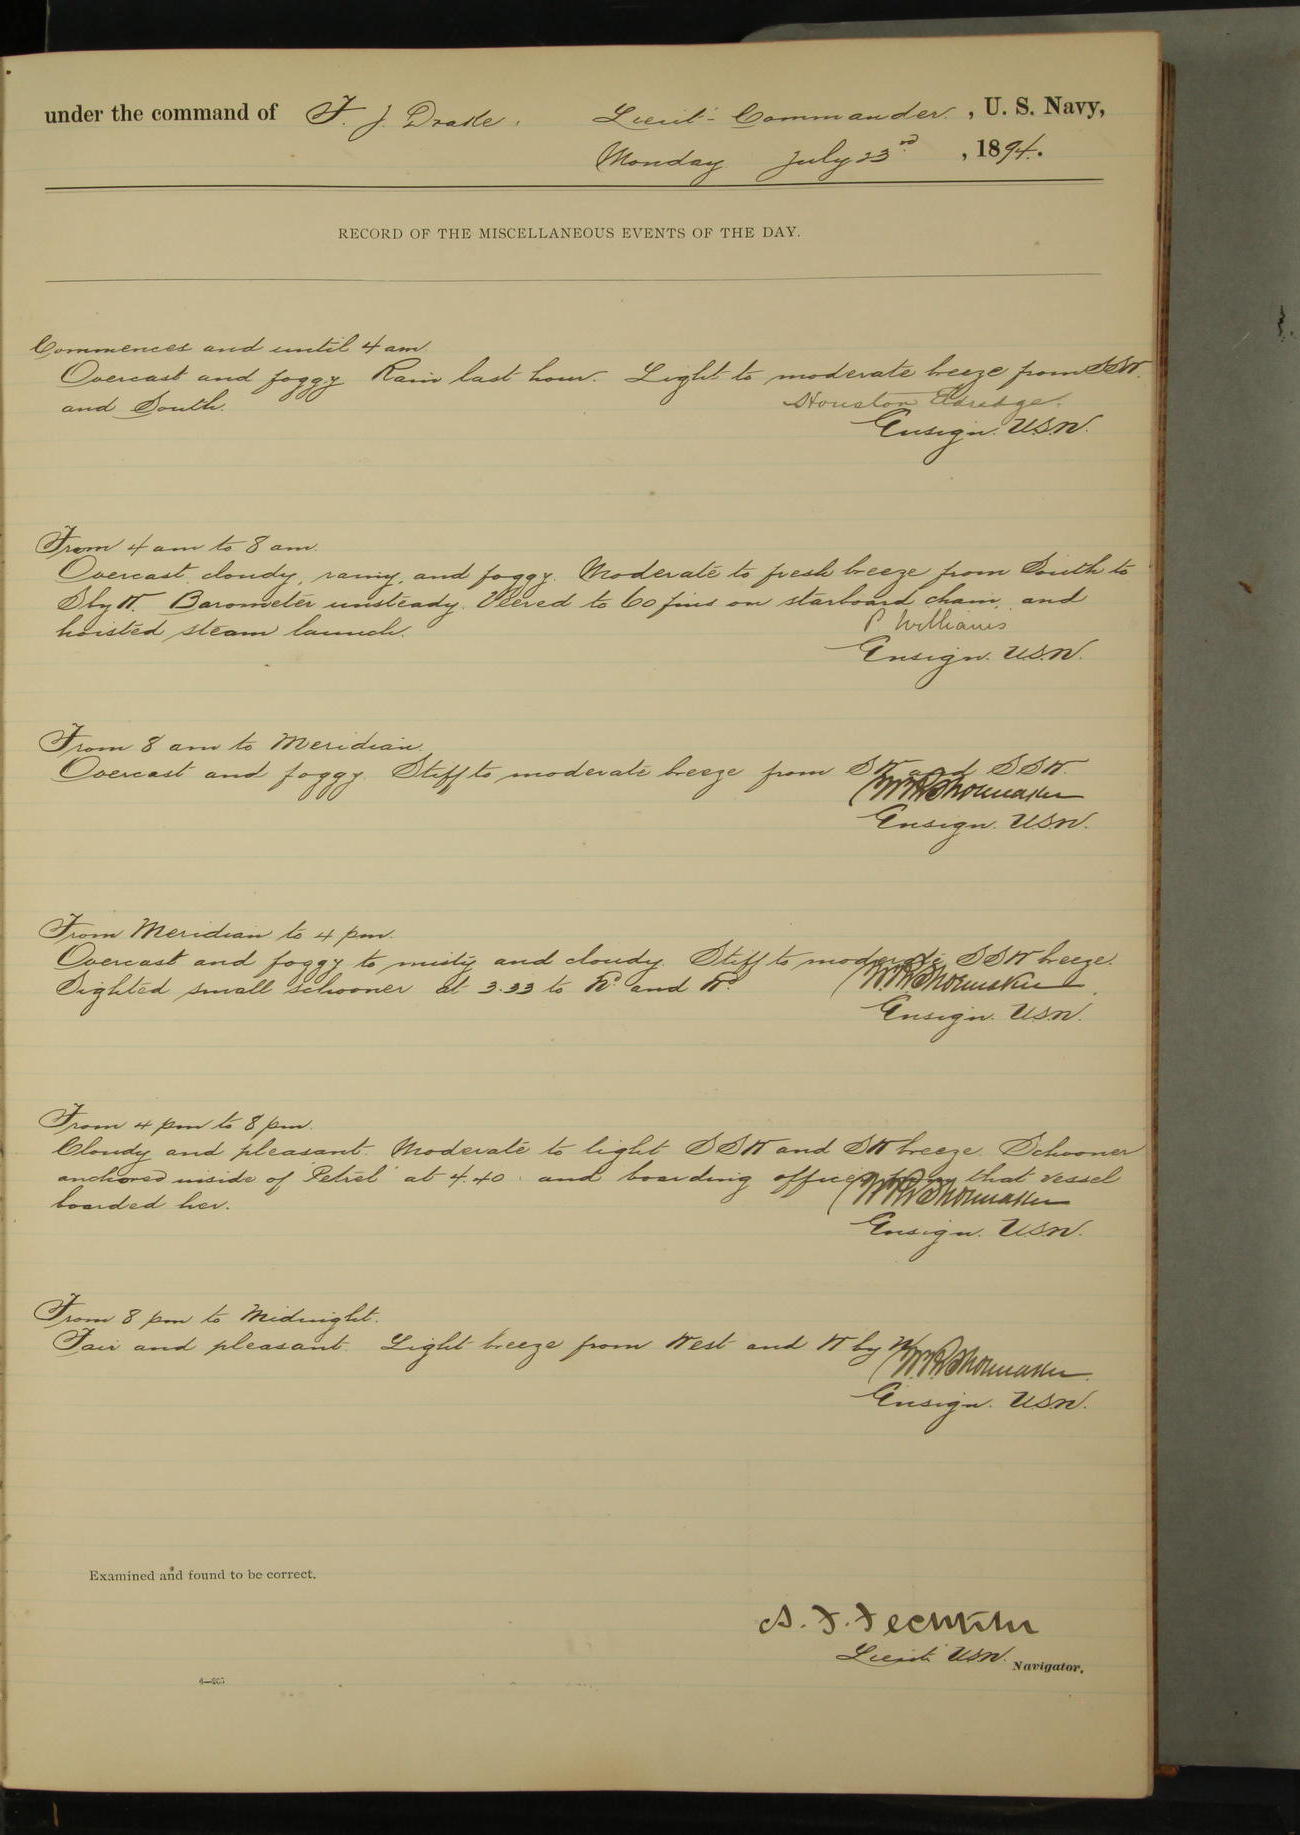 under the command of F. J. Drake, Lieut- Commander. , U. S. Navy,
Monday July 23rd , 1894.
RECORD OF THE MISCELLANEOUS EVENTS OF THE DAY.
Commences and until 4 am.
Overcast and foggy. Rain last hour. Light to moderate breeze from SSW.
and South.
Houston Eldredge.
Ensign. U.S.N.
From 4 am to 8 am.
Overcast, cloudy, rainy, and foggy. Moderate to fresh breeze from South to
S by W. Barometer unsteady. Veered to 60 fms on starboard chain, and
hoisted steam launch.
P Williams
Ensign. U.S.N.
From 8 am to Meridian.
Overcast and foggy. Stiff to moderate breeze from SW and SSW.
W.R. Shoemaker
Ensign. U.S.N.
From Meridian to 4 pm.
Overcast and foggy to misty and cloudy. Stiff to moderate SSW breeze.
Sighted small schooner at 3.33 to Nd and Wd
W.R. Shoemaker
Ensign. U.S.N.
From 4 pm to 8 pm.
Cloudy and pleasant. Moderate to light SSW and SW breeze. Schooner
anchored inside of "Petrel" at 4.40. and boarding officer from that vessel
boarded her.
W.R. Shoemaker
Ensign. U.S.N.
From 8 pm to Midnight.
Fair and pleasant. Light breeze from West and W by N.
W.R. Shoemaker.
Ensign. U.S.N.
Examined and found to be correct.
A. F. Fechteler
Lieut. U.S.N. Navigator.